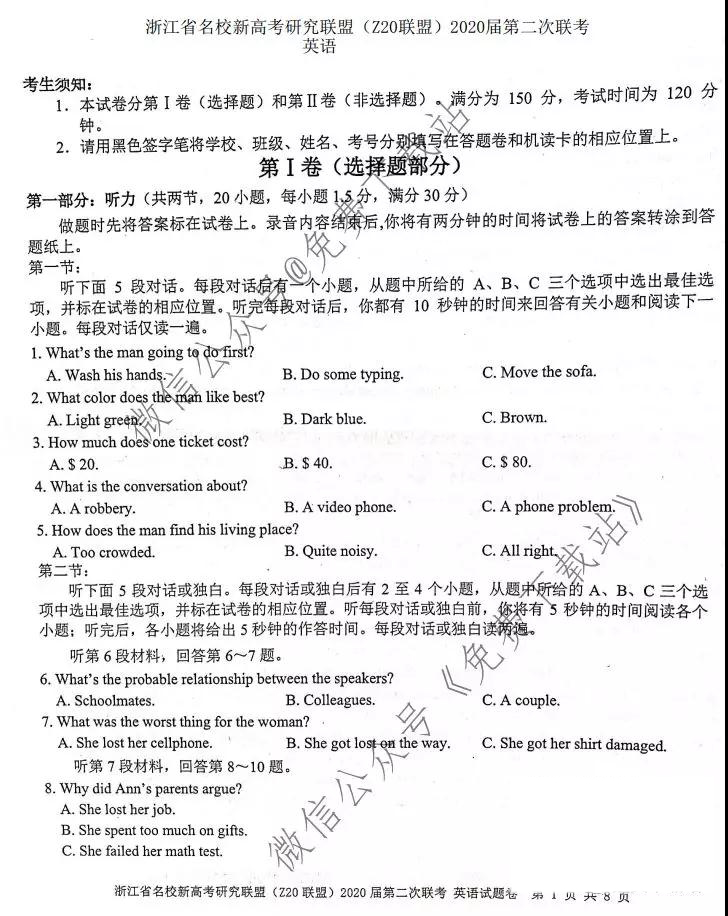 浙江省名校新高考研究联盟（Z20联盟）2020届第二次联考
英语
考生须知：
1．本试卷分第Ⅰ卷（选择题）和第Ⅱ卷（非选择题）。满分为 150 分，考试时间为 120 分
钟。
2．请用黑色签字笔将学校、班级、姓名、考号分别填写在答题卷和机读卡的相应位置上。
第Ⅰ卷（选择题部分）
第一部分：听力（共两节，20 小题，每小题 1.5 分，满分 30 分）
做题时先将答案标在试卷上。录音内容结束后,你将有两分钟的时间将试卷上的答案转涂到答
题纸上。
第一节：
听下面 5 段对话。每段对话后有一个小题，从题中所给的 A、B、C 三个选项中选出最佳选
项，并标在试卷的相应位置。听完每段对话后，你都有 10 秒钟的时间来回答有关小题和阅读下一
小题。每段对话仅读一遍。
1. What's the man going to do first?
A. Wash his hands. B. Do some typing. C. Move the sofa.
2. What color does the man like best?
A. Light green. B. Dark blue. C. Brown.
3. How much does one ticket cost?
A. $ 20. B. $ 40. C. $ 80.
4. What is the conversation about?
A. A robbery. B. A video phone. C. A phone problem.
5. How does the man find his living place?
A. Too crowded. B. Quite noisy. C. All right.
第二节：
听下面 5 段对话或独白。每段对话或独白后有 2 至 4 个小题，从题中所给的 A、B、C 三个选
项中选出最佳选项，并标在试卷的相应位置。听每段对话或独白前，你将有 5 秒钟的时间阅读各个
小题；听完后，各小题将给出 5 秒钟的作答时间。每段对话或独白读两遍。
听第 6 段材料，回答第 6～7 题。
6. What's the probable relationship between the speakers?
A. Schoolmates. B. Colleagues. C. A couple.
7. What was the worst thing for the woman?
A. She lost her cellphone. B. She got lost on the way. C. She got her shirt damaged.
听第 7 段材料，回答第 8～10 题。
8. Why did Ann's parents argue?
A. She lost her job.
B. She spent too much on gifts.
C. She failed her math test.
浙江省名校新高考研究联盟（Z20 联盟）2020 届第二次联考 英语试题卷 第 1 页 共 8 页
微信公众号@免费下载站
微信公众号《免费下载站》